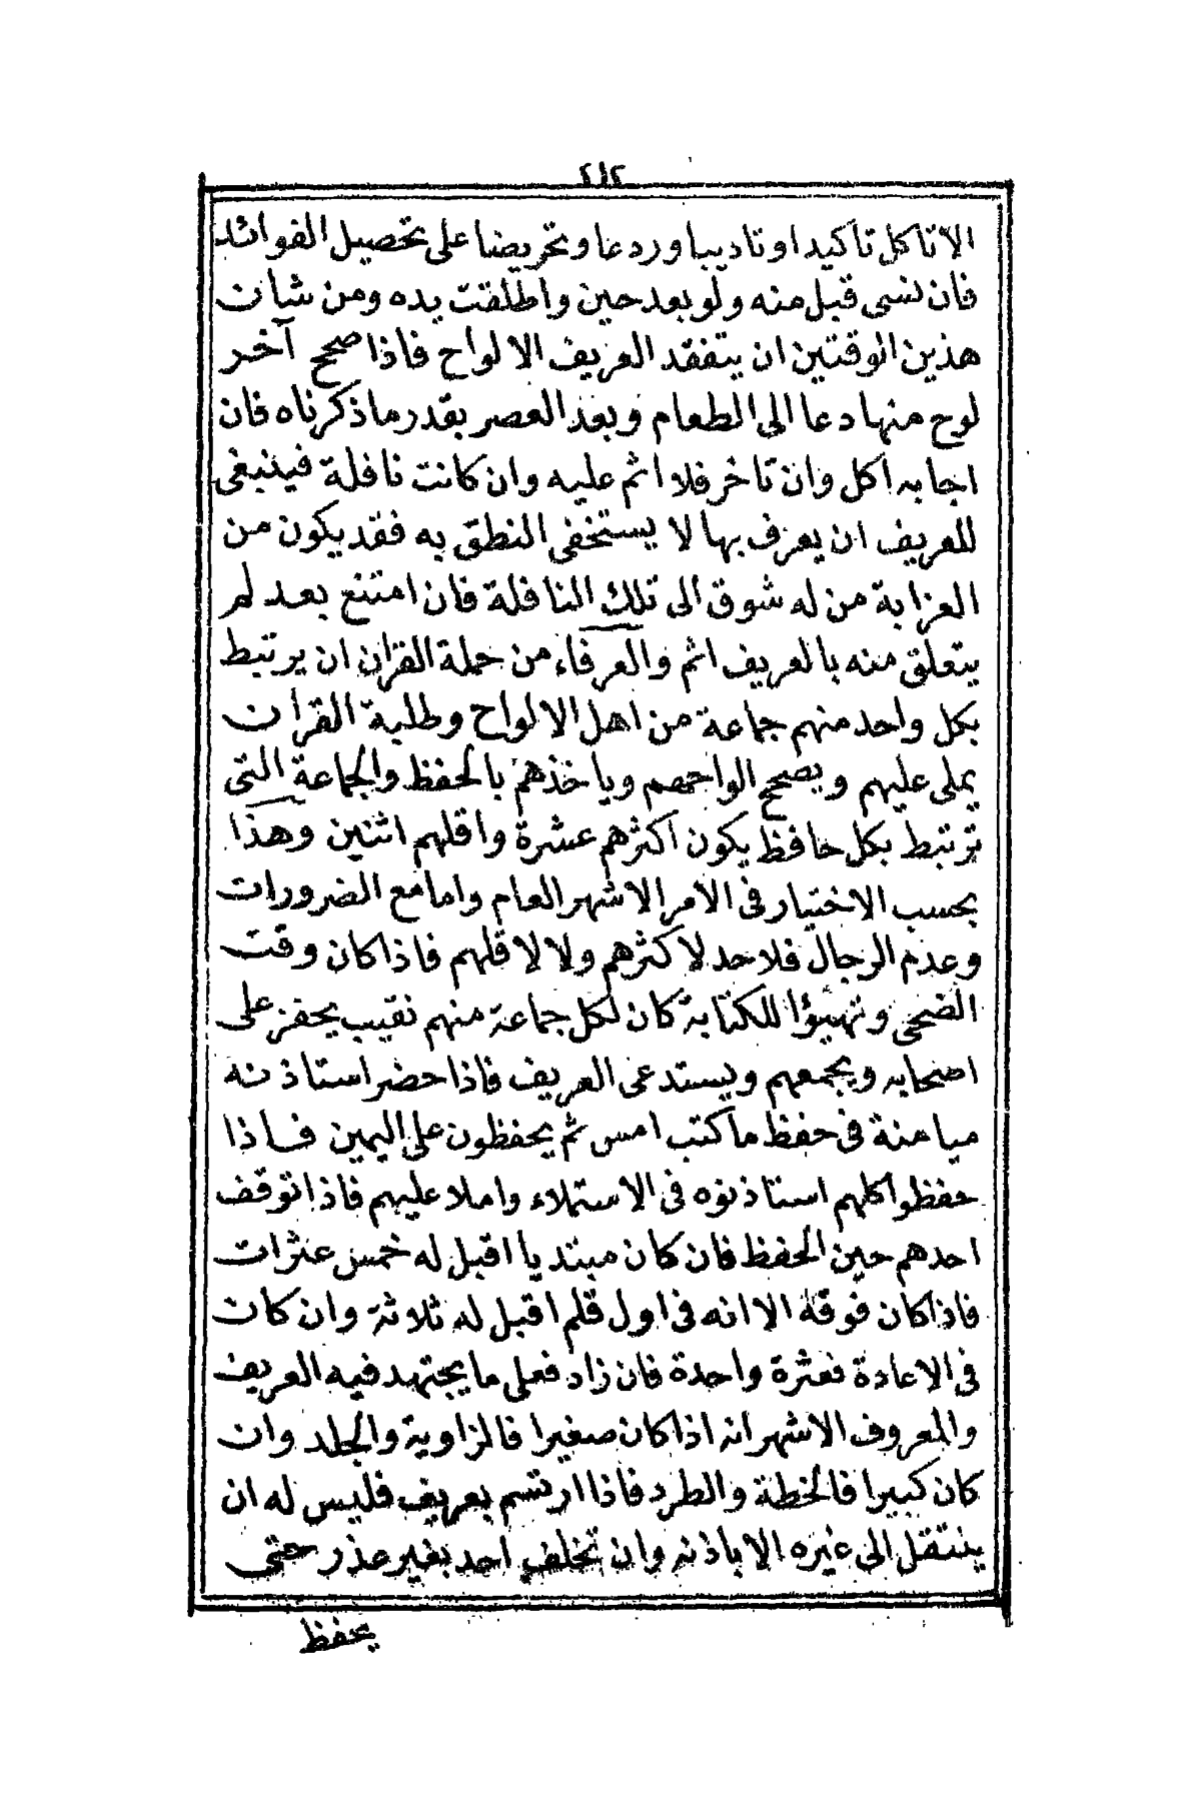 ٤١٢
الا تاكل تاكيدا وتاديبا وردعا وتحريضا على تحصيل الفوائد
فان نسى قبل منه ولو بعد حين واطلقت يده ومن شان
هذين الوقتين ان يتفقد العريف الالواح فاذا صحح آخر
لوح منها دعا الى الطعام وبعد العصر بقدر ما ذكرناه فان
اجابه اكل وان تاخر فلا اثم عليه وان كانت نافلة فينبغى
للعريف ان يعرف بها لا يستخفى النطق به فقد يكون من
العزابة من له شوق الى تلك النافلة فان امتنع بعد لم
يتعلق منه بالعريف اثم والعرفاء من حملة القران ان يرتبط
بكل واحد منهم جماعة من اهل الالواح وطلبة القران
يملى عليهم ويصحح الواحهم وياخذهم بالحفظ والجماعة التى
ترتبط بكل حافظ يكون اكثرهم عشرة واقلهم اثنين وهذا
بحسب الاختيار فى الامر الاشهر العام واما مع الضرورات
وعدم الرجال فلا حد لاكثرهم ولا لاقلهم فاذا كان وقت
الضحى وتهيؤا للكتابة كان لكل جماعة منهم نقيب يحفز على
اصحابه ويجمعهم ويستدعى العريف فاذا حضر استاذنه
ميامنة فى حفظ ما كتب امس ثم يحفظون على اليمين فاذا
حفظوا كلهم استاذنوه فى الاستملاء واملا عليهم فاذا توقف
احدهم حين الحفظ فان كان مبتديا اقبل له خمس عثرات
فاذا كان فوقه الا انه فى اول قلم اقبل له ثلاثة وان كان
فى الاعادة فعثرة واحدة فان زاد فعلى ما يجتهد فيه العريف
والمعروف الاشهر انه اذا كان صغيرا فالزاوية والجلد وان
كان كبيرا فالخطة والطرد فاذا ارتسم بعريف فليس له ان
ينتقل الى غيره الا باذنه وان تخلف احد بغير عذر حتى
يحفظ